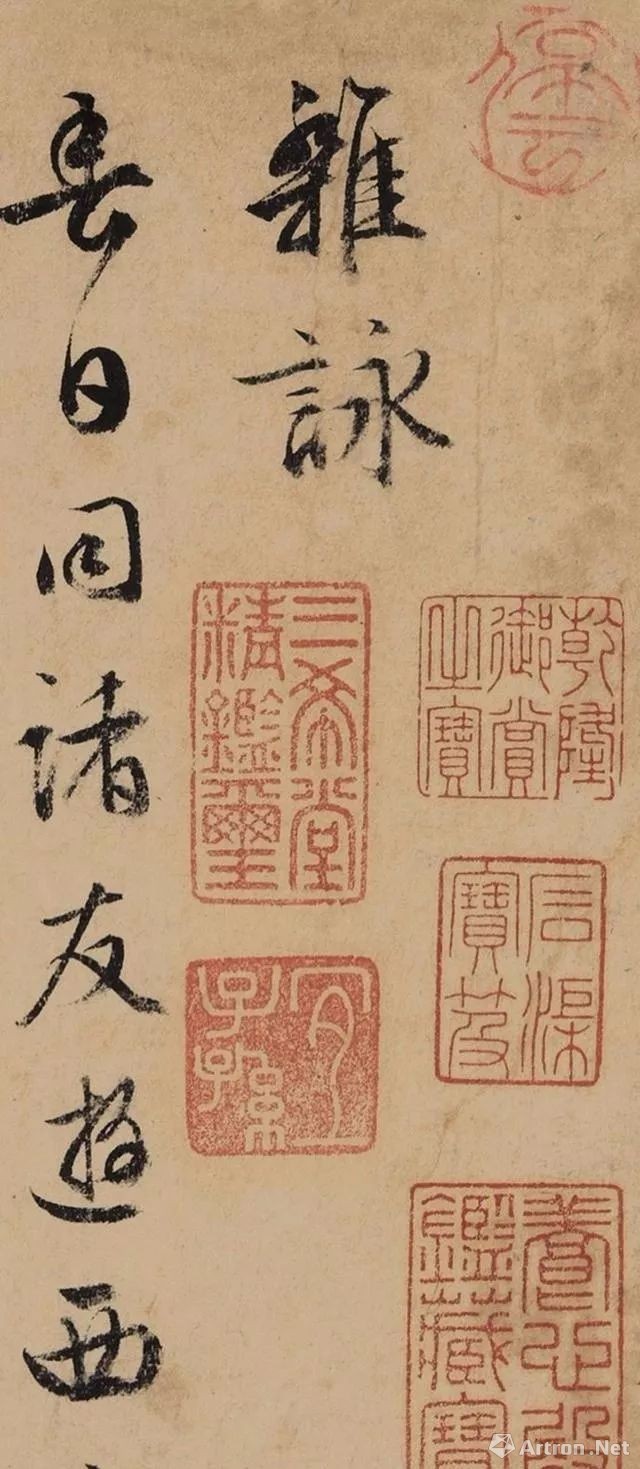 乾隆御賞之寶
石渠寶笈
養心殿鑑藏寶
雜詠
三希堂精鑑璽
宜子孫
春日同諸友遊西
Artron.Net